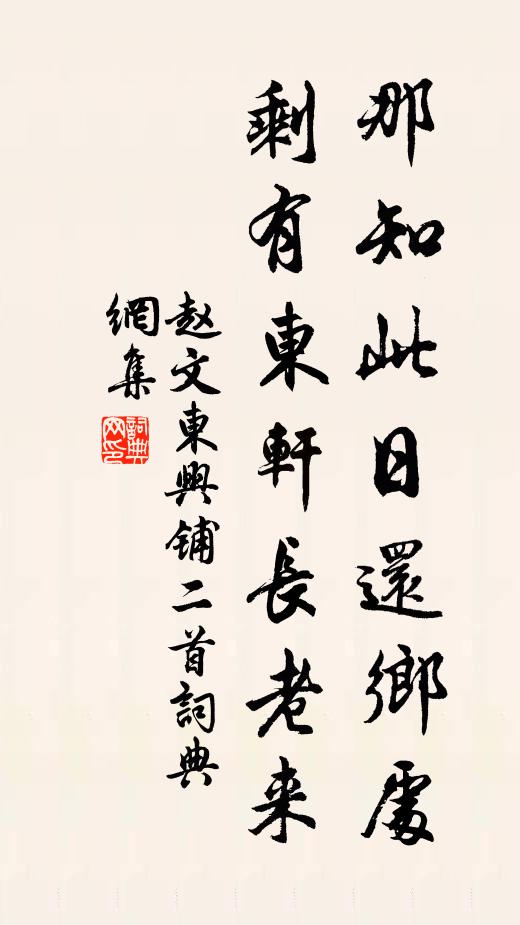 那知此日還鄉處
剩有東軒長老来
赵文東興铺二首詞典
網集
詞典网印